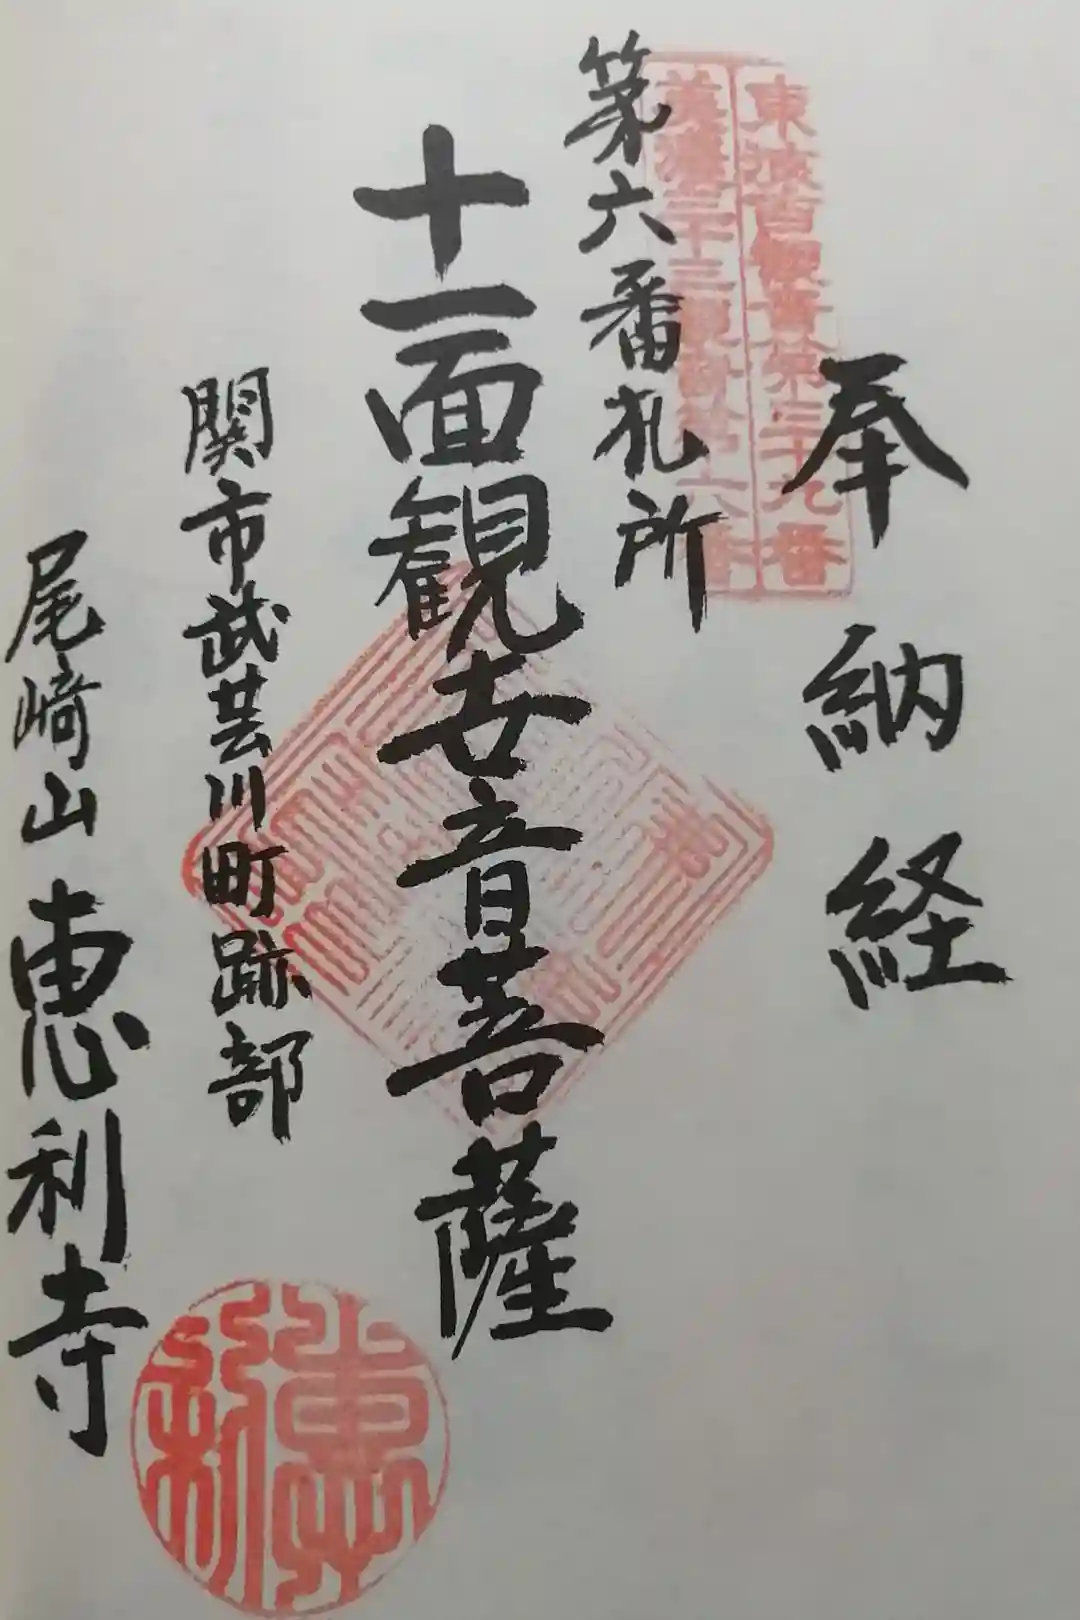 奉納経
東海百観音第三十九番
美濃三十三観音第六番
第六番札所
十一面観世音菩薩
関市武芸川町跡部
尾崎山恵利寺